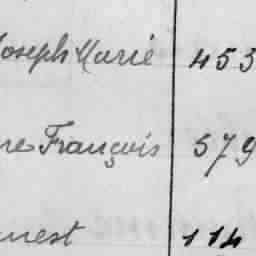 Joseph Marie 453
re François 579
nest 114